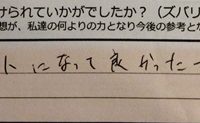 けられていかがでしたか？（ズバリ
想が、私達の何よりの力となり今後の参考とな
になって良かった